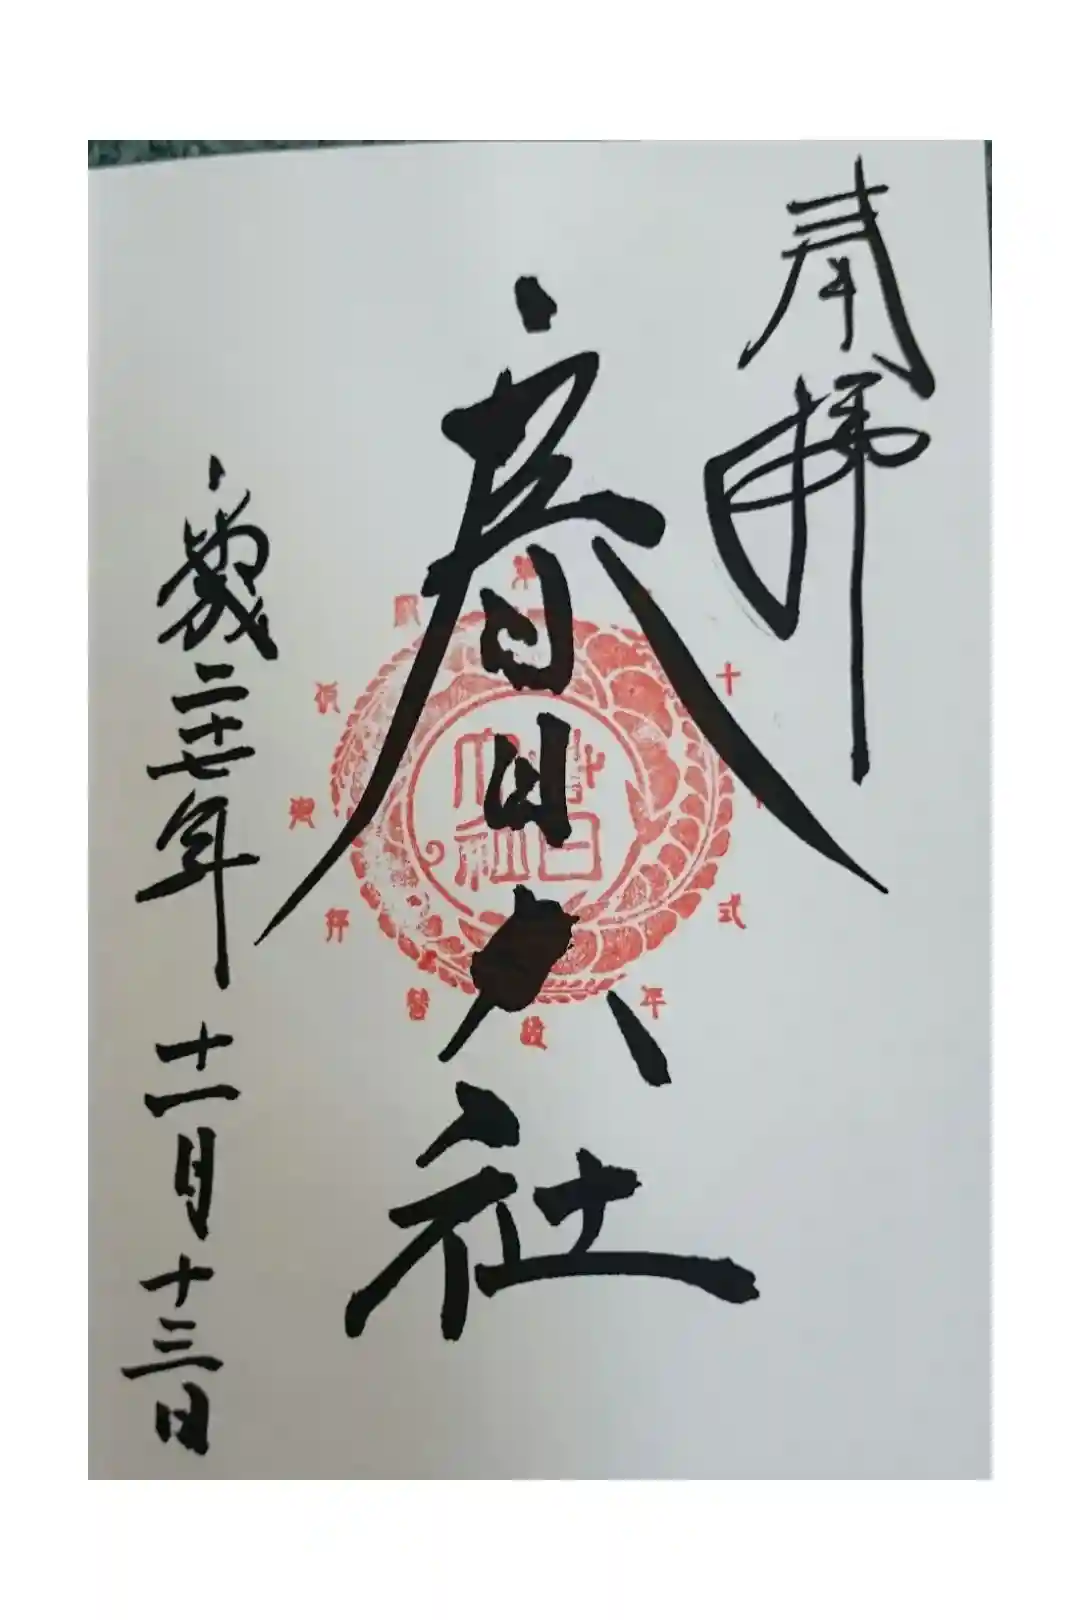 奉拝
春日大社
歳二十七年 十一月十三日
春日
大社